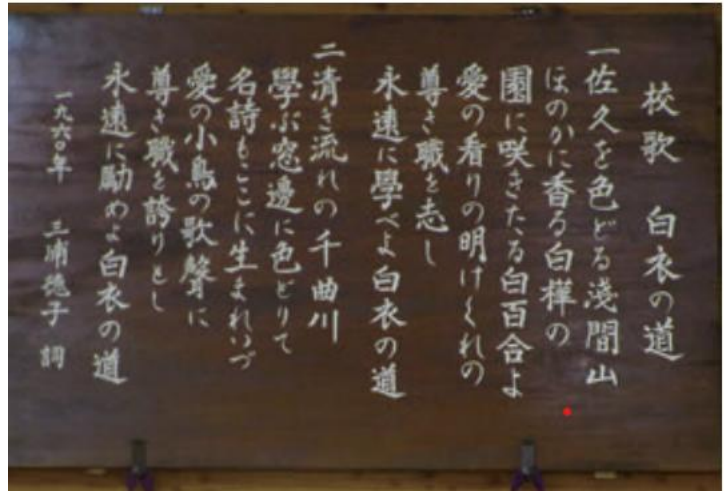 校歌 白衣の道
一 佐久を色どる淺間山
ほのかに香る白樺の
園に咲きたる白百合よ
愛の看りの明けくれの
尊き職を志し
永遠に學べよ白衣の道
二 清き流れの千曲川
學ぶ窓邊に色どりて
名詩もここに生まれいづ
愛の小鳥の歌聲に
尊き職を誇りとし
永遠に勵めよ白衣の道
一九六〇年 三浦穂子 詞